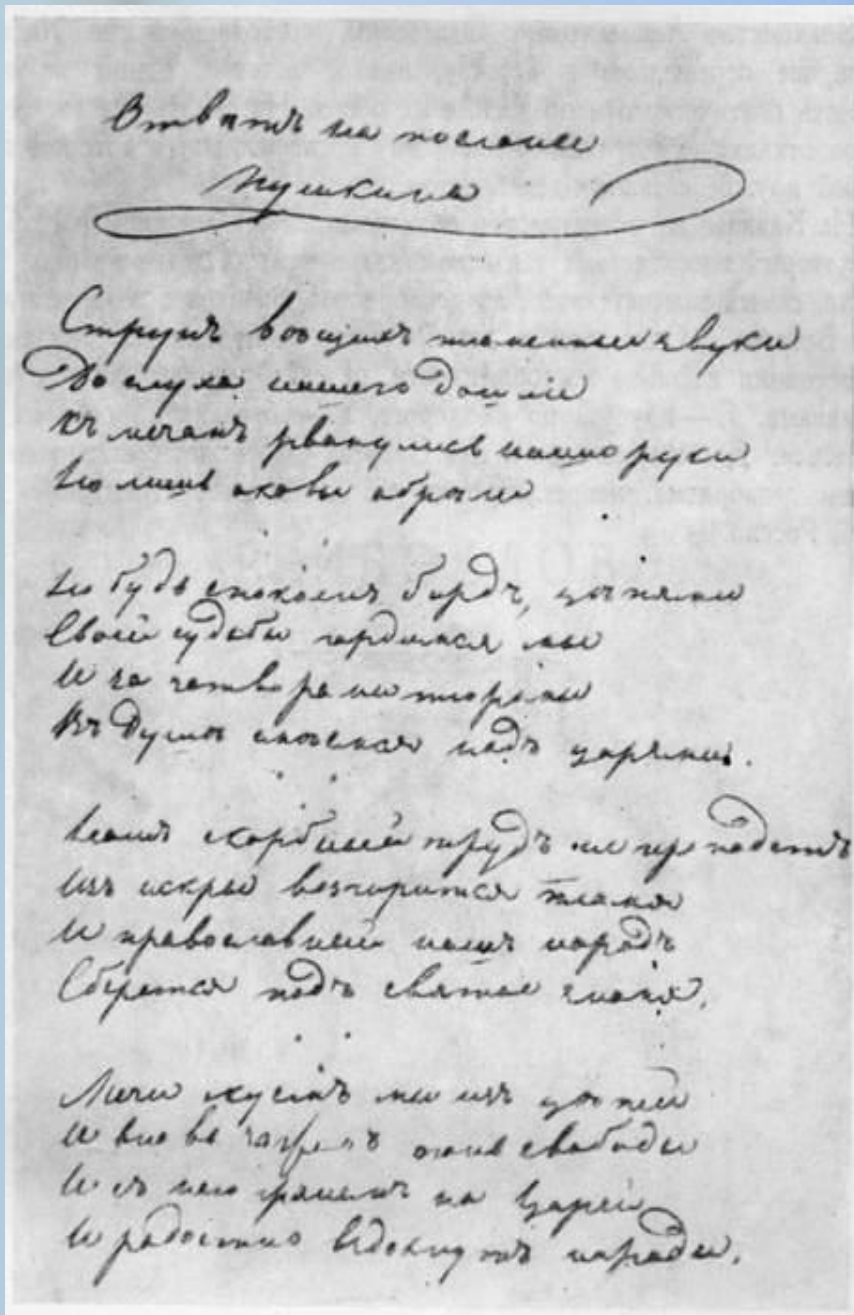 Отвѣтъ на посланіе
Пушкина
Струнъ вѣщихъ пламенные звуки
До слуха нашего дошли
Къ мечамъ рванулись наши руки
Но лишь оковы обрѣли
Но будь спокоенъ бардъ, цѣпями
Своей судьбой гордимся мы
И за затворами тюрьмы
Въ душѣ смѣемся надъ царями.
Нашъ скорбный трудъ не пропадетъ
Изъ искры возгорится пламя
И православный нашъ народъ
Сберется подъ святое знамя.
Мечи скуемъ мы изъ цѣпей
И вновь зажжемъ огонь свободы
И съ нею грянемъ на царей
И радостно вздохнутъ народы.